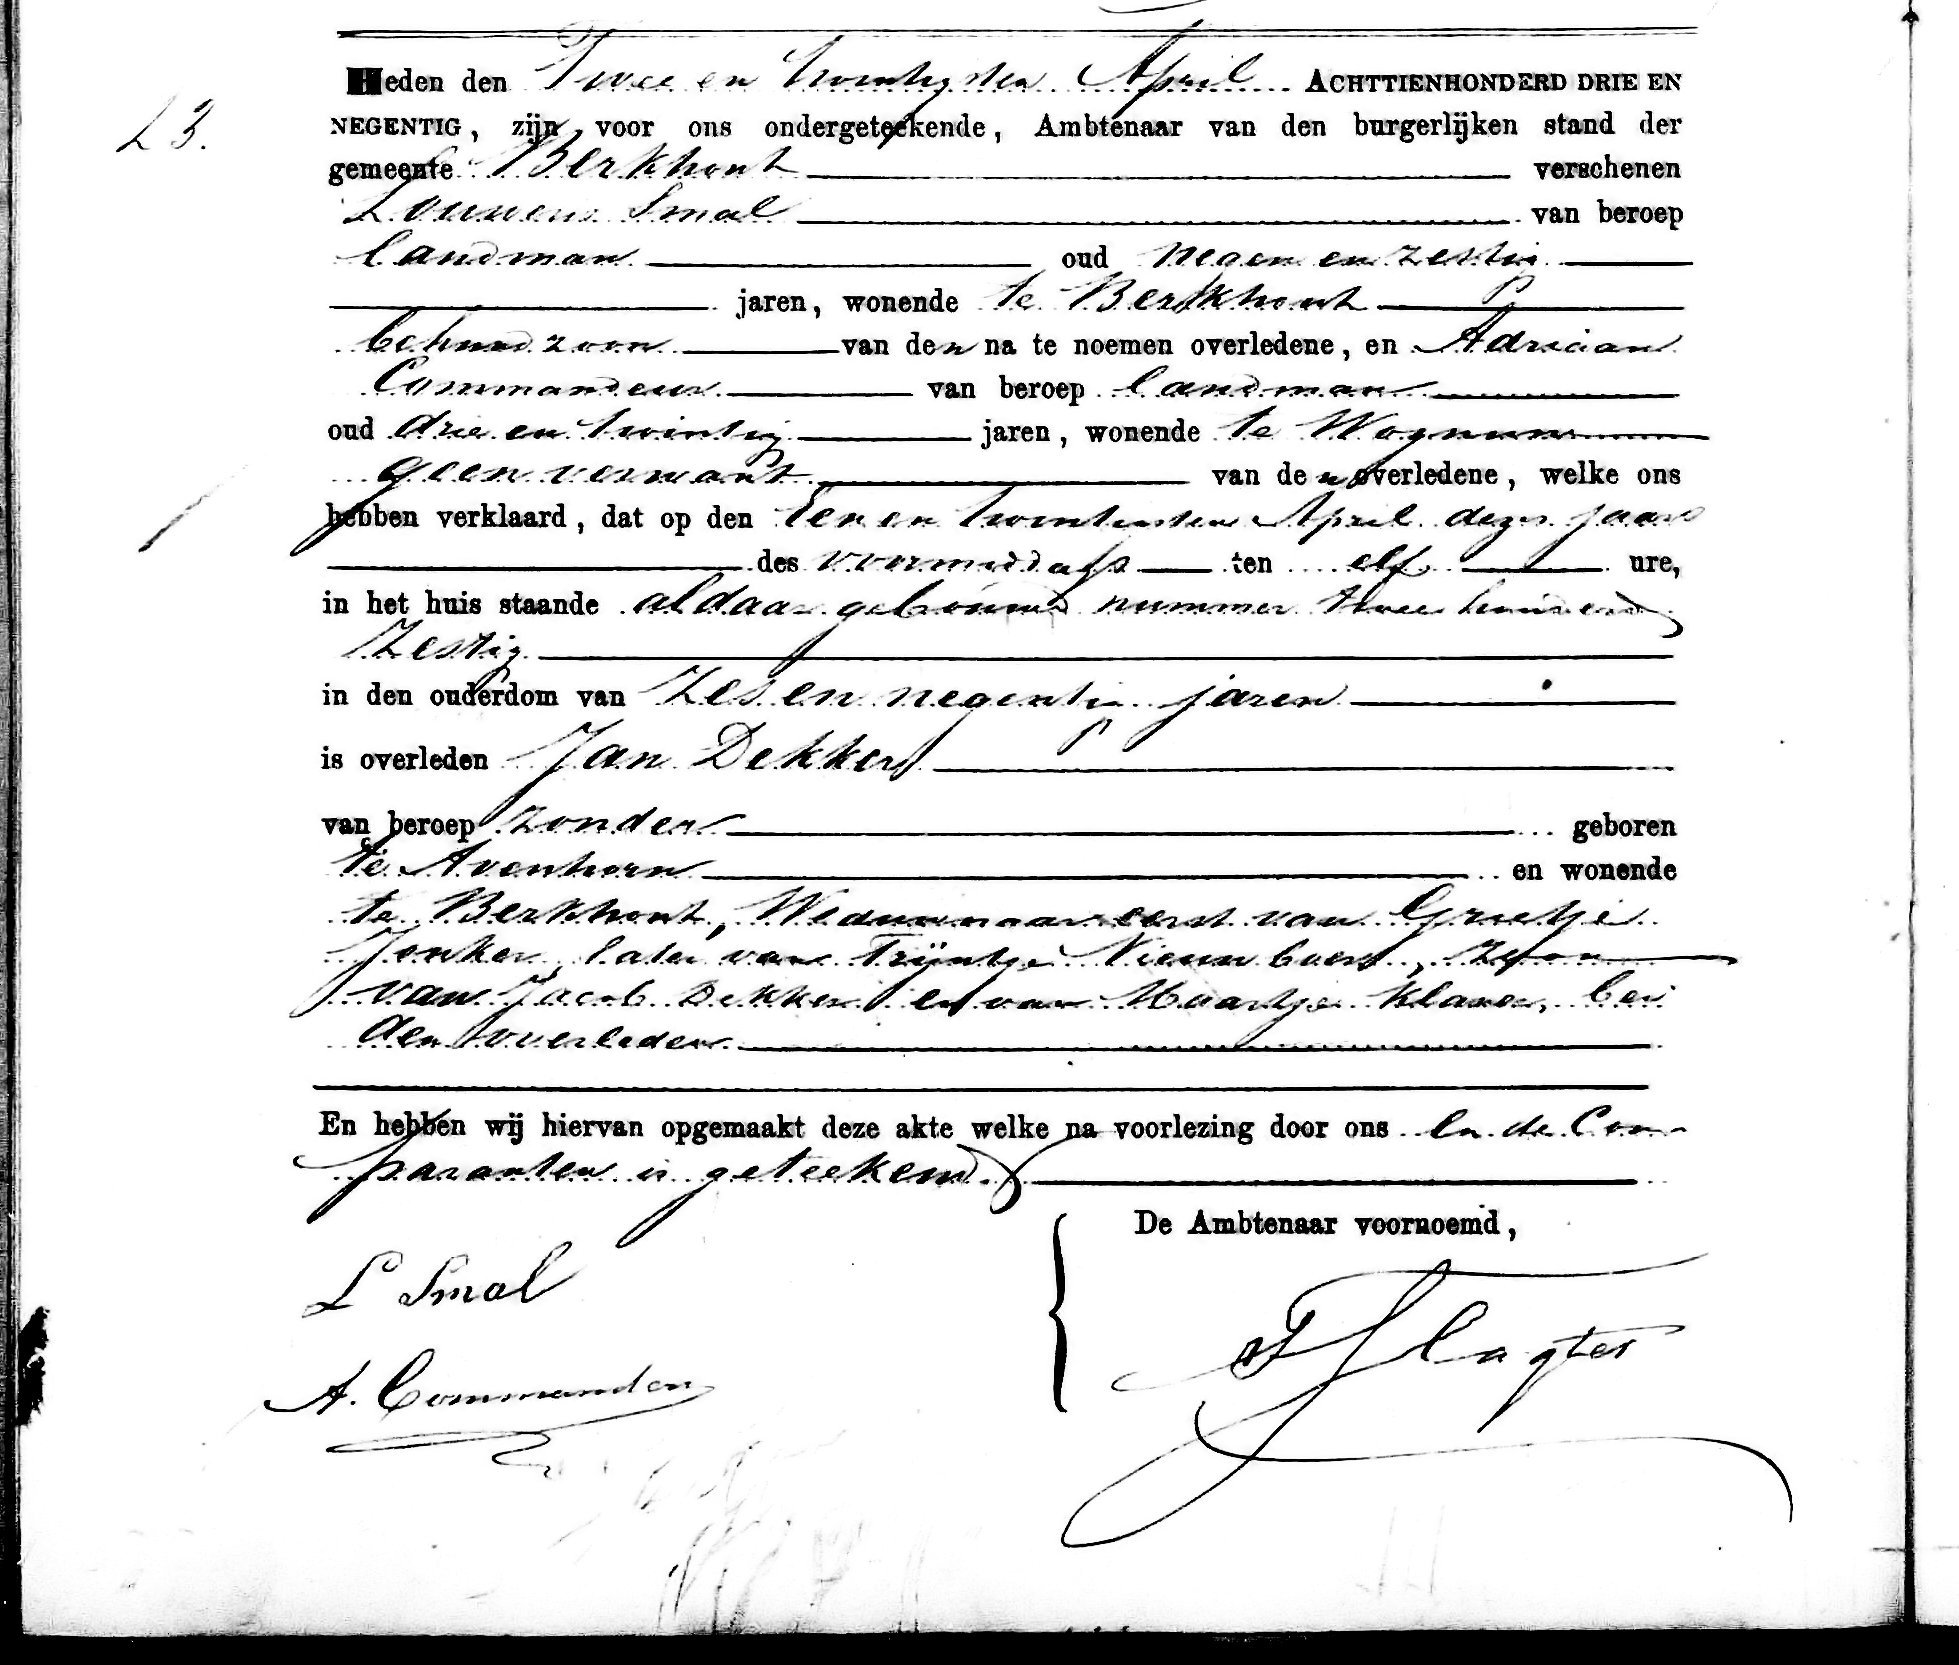 Heden den Twee en twintigsten April ACHTTIENHONDERD DRIE EN
23.
NEGENTIG, zijn voor ons ondergeteekende, Ambtenaar van den burgerlijken stand der
gemeente Berkhout verschenen
Louwens Smal van beroep
landman oud negen en zestig
jaren, wonende te Berkhout
behuwdzoon van den na te noemen overledene, en Adriaan
Commandeur van beroep landman
oud drie en twintig jaren, wonende te Wognum
geen verwant van den overledene, welke ons
hebben verklaard, dat op den Een en twintigsten April dezes jaars
des voormiddags ten elf ure,
in het huis staande aldaar gebuurd nummer twee honderd
zestig
in den ouderdom van Zes en negentig jaren
is overleden Jan Dekker
van beroep zonder geboren
te Avenhorn en wonende
te Berkhout, Weduwnaar eerst van Grietje
Jonker, later van Trijntje Nieuwboer, zoon
van Jacob Dekker en van Maartje Klaver, bei
den overleden
En hebben wij hiervan opgemaakt deze akte welke na voorlezing door ons en de Com-
paranten is geteekend.
De Ambtenaar voornoemd,
L Smal
A. Commandeur
Slagter